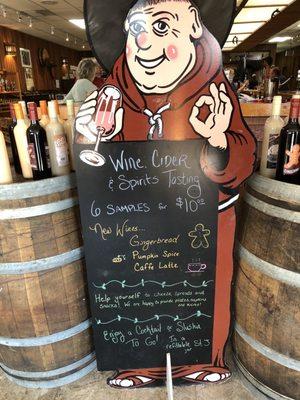 Wine, Cider
& Spirits Tasting
6 Samples for $10.00
New Wines...
Gingerbread
Pumpkin Spice
Caffe Latte
Help yourself to cheese spreads and
snacks! We are happy to provide plates, napkins
and more!
Enjoy a Cocktail & Slusha
To Go!
In a
refillable
jar
$13